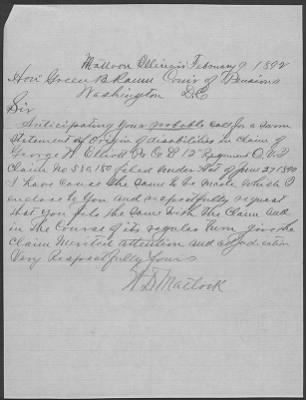 Mattoon Illinois February 9 1892
Hon Green B Raum Comr of Pensions
Washington D.C
Sir
Anticipating your probable call for a sworn
Statement of Origin of disabilities in claim of
George W Elliott Co E 12 Regiment O.V.I
Claim No 510,150 filed under Act of June 27 1890
I have caused the same to be made which I
enclose to you and respectfully request
that you file the same with the Claim and
in the Course of its regular turn give the
Claim Merited attention and adjudication
Very Respectfully Yours
Matlock